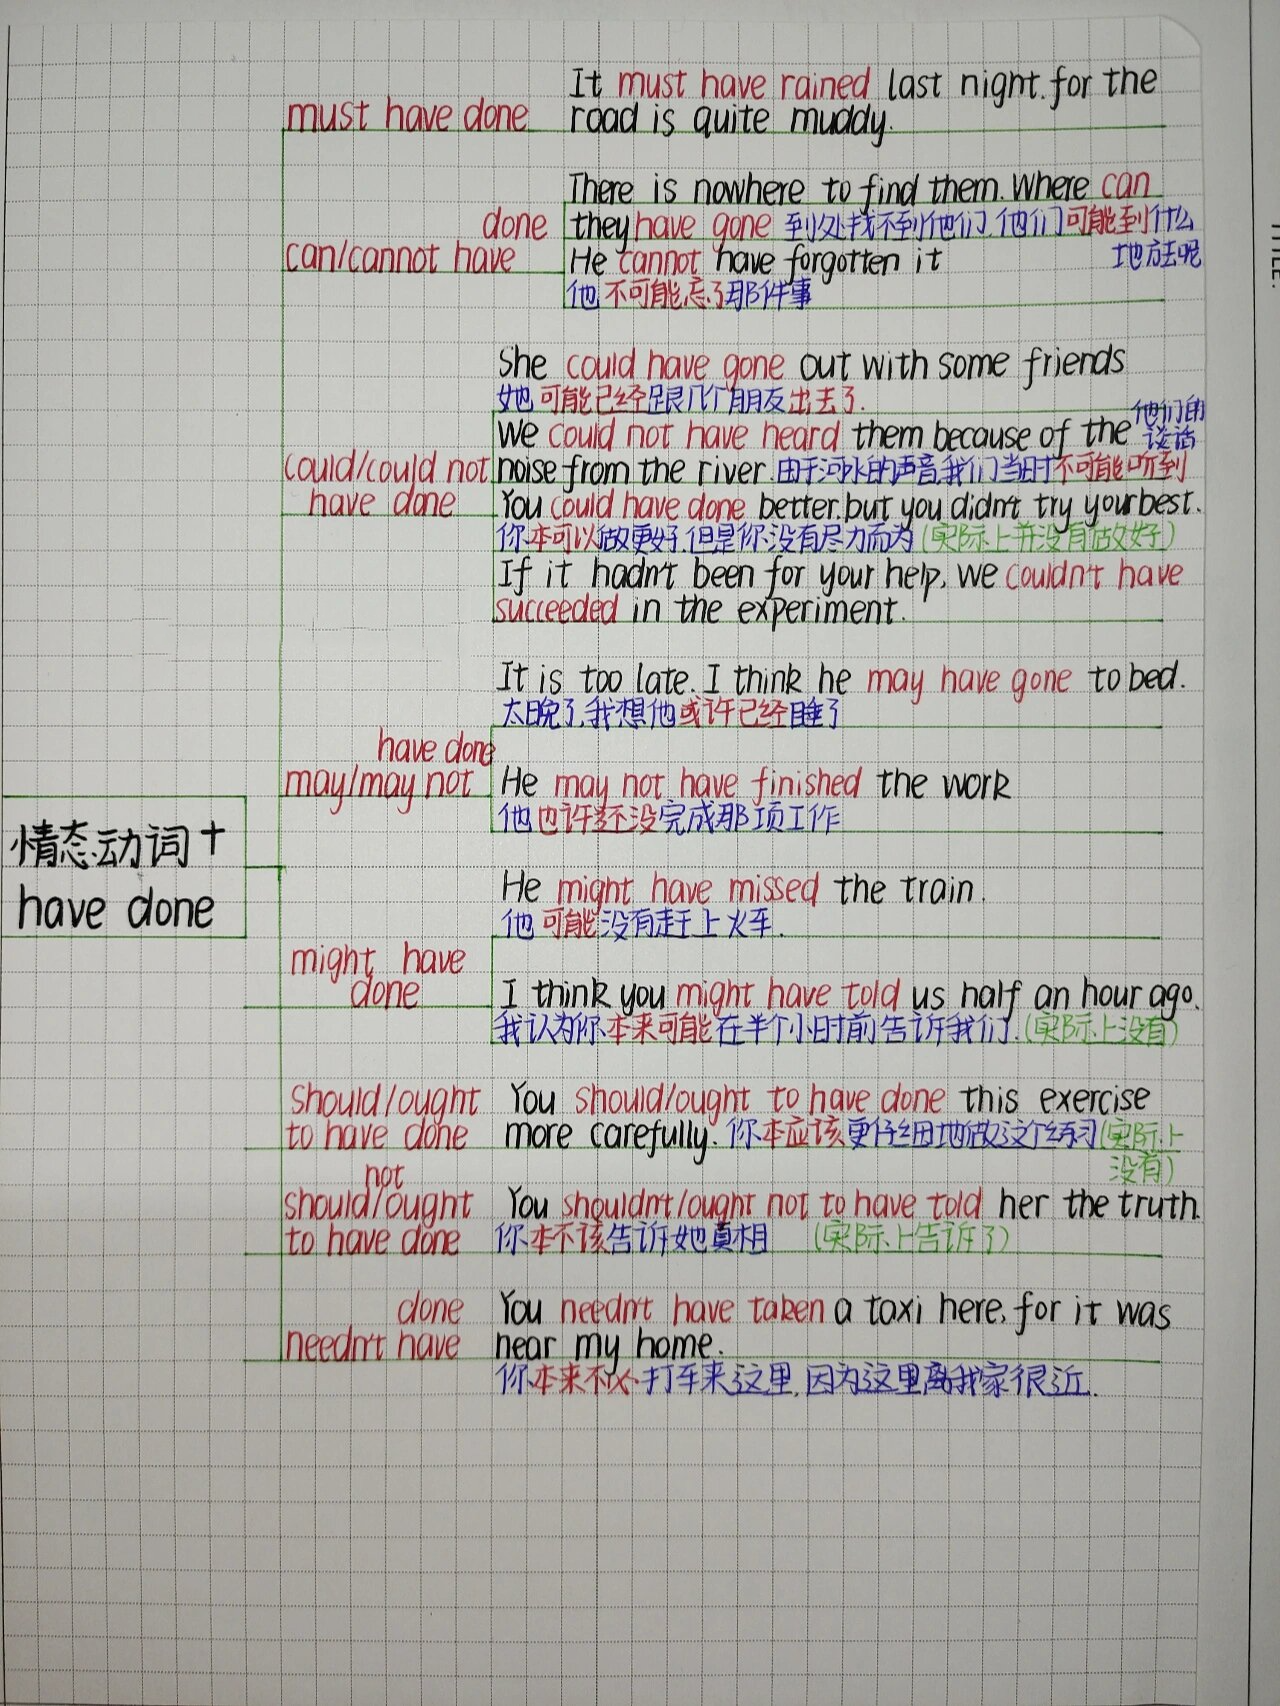 It must have rained last night. for the
must have done road is quite muddy.
There is nowhere to find them. Where can
done they have gone 到处找不到他们.他们可能到什么
can/cannot have He cannot have forgotten it 地方去呢
他不可能忘了那件事
She could have gone out with some friends
她可能已经跟几个朋友出去了.
We could not have heard them because of the 他们的谈话
could/could not noise from the river.由于河水的声音,我们当时不可能听到
have done You could have done better.but you didn't try your best.
你本可以做更好.但是你没有尽力而为(实际上并没有做好)
If it hadn't been for your help, we couldn't have
succeeded in the experiment.
It is too late. I think he may have gone to bed.
太晚了.我想他或许已经睡了
have done
may/may not He may not have finished the work
他也许还没完成那项工作
情态动词+
have done
He might have missed the train.
他可能没有赶上火车.
might have
done I think you might have told us half an hour ago.
我认为你本来可能在半个小时前告诉我们.(实际上没有)
should/ought You should/ought to have done this exercise
to have done more carefully.你本应该更仔细地做这个练习(实际上
没有)
not
should/ought You shouldn't/ought not to have told her the truth.
to have done 你本不该告诉她真相 (实际上告诉了)
done You needn't have taken a taxi here, for it was
needn't have near my home.
你本来不必打车来这里,因为这里离我家很近.
TITLE: